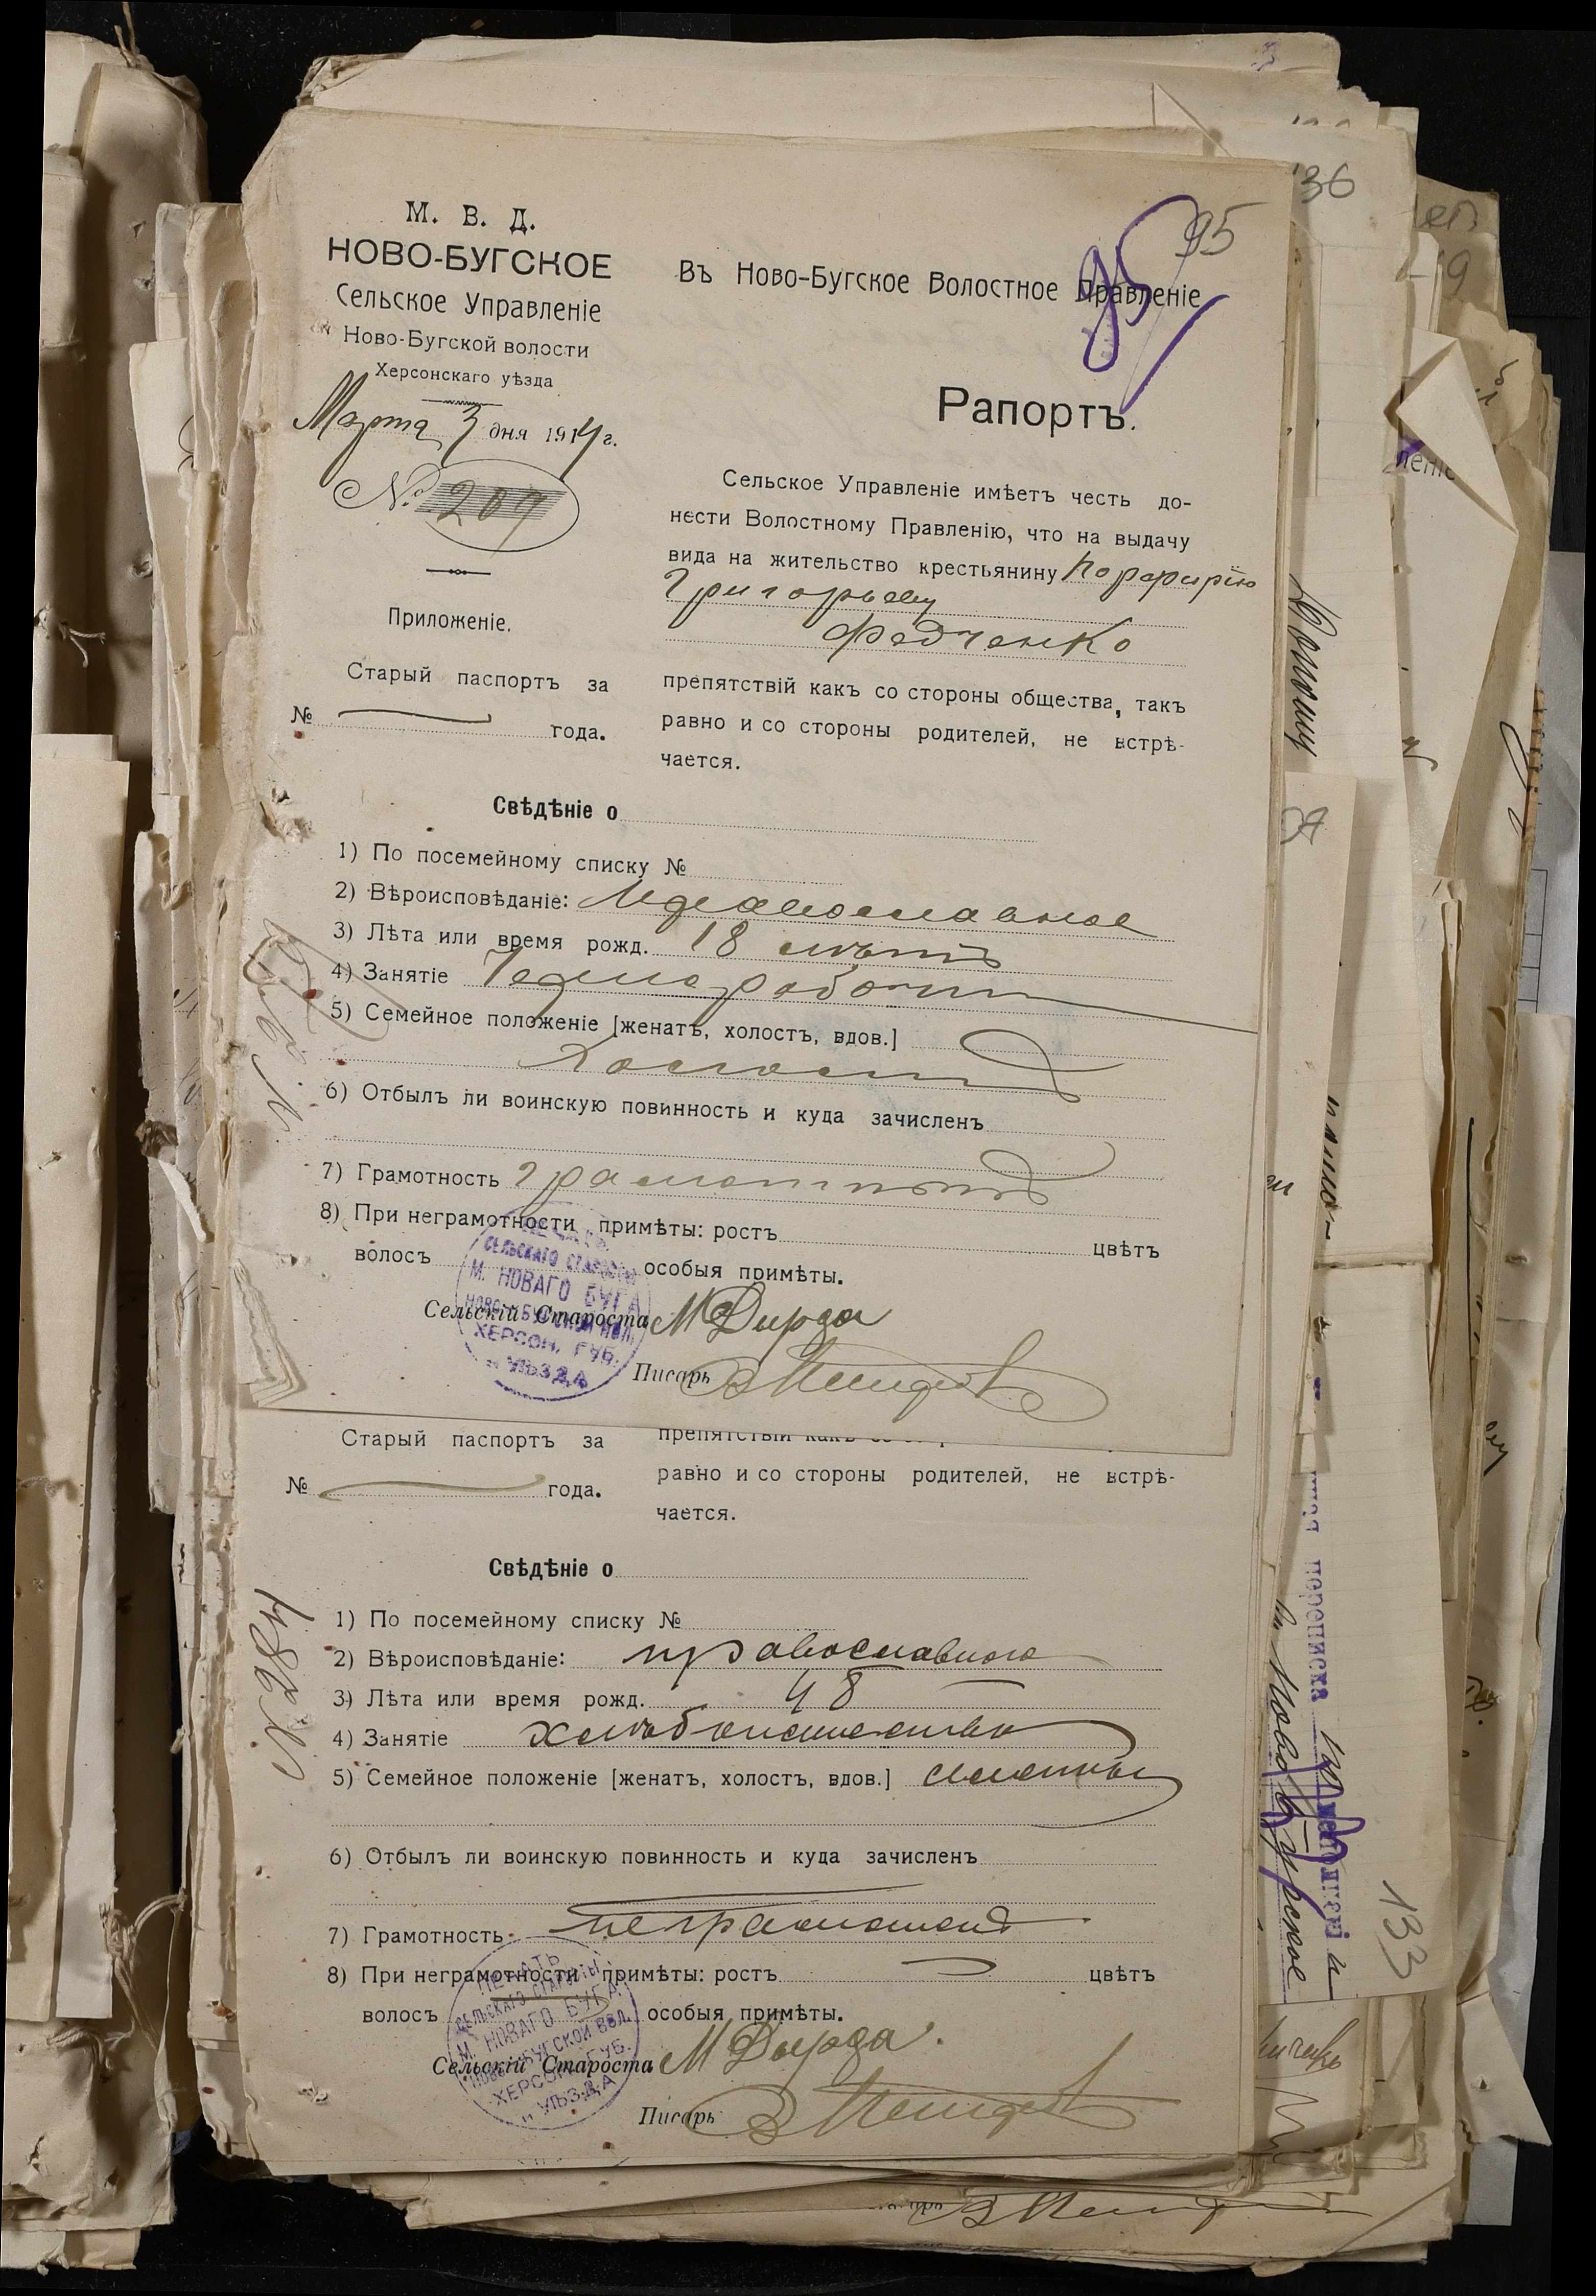 М. В. Д.
НОВО-БУГСКОЕ
Сельское Управленіе
Ново-Бугской волости
Херсонскаго уѣзда
Марта 3 дня 1914 г.
№ 209
Приложеніе.
Старый паспортъ за
№ года.
95
95
Въ Ново-Бугское Волостное Правленіе
Рапортъ.
Сельское Управленіе имѣетъ честь до-
нести Волостному Правленію, что на выдачу
вида на жительство крестьянину Порфирію
Григорьеву
Федченко
препятствій какъ со стороны общества, такъ
равно и со стороны родителей, не встрѣ-
чается.
Свѣдѣніе о
1) По посемейному списку №
2) Вѣроисповѣданіе: Православное
3) Лѣта или время рожд. 18 лѣтъ
4) Занятіе Чернорабочій
5) Семейное положеніе [женатъ, холостъ, вдов.]
Холостъ
6) Отбылъ ли воинскую повинность и куда зачисленъ
7) Грамотность грамотный
8) При неграмотности примѣты: ростъ цвѣтъ
волосъ особыя примѣты.
ПЕЧАТЬ
СЕЛЬСКАГО СТАРОСТЫ
М. НОВАГО БУГА
НОВО-БУГСКОЙ ВОЛ.
ХЕРСОН. ГУБ.
и УѢЗДА
Сельскій Староста М Дырда
Писарь
Старый паспортъ за
№ года.
препятствій какъ со
равно и со стороны родителей, не встрѣ-
чается.
Свѣдѣніе о
1) По посемейному списку №
2) Вѣроисповѣданіе: православнаго
3) Лѣта или время рожд. 48
4) Занятіе хлѣбопашество
5) Семейное положеніе [женатъ, холостъ, вдов.]
6) Отбылъ ли воинскую повинность и куда зачисленъ
7) Грамотность неграмотенъ
8) При неграмотности примѣты: ростъ цвѣтъ
волосъ особыя примѣты.
ПЕЧАТЬ
СЕЛЬСКАГО СТАРОСТЫ
М. НОВАГО БУГА
НОВО-БУГСКОЙ ВОЛ.
ХЕРСОН. ГУБ.
и УѢЗДА
Сельскій Староста М Дырда.
Писарь
36
переписка
133